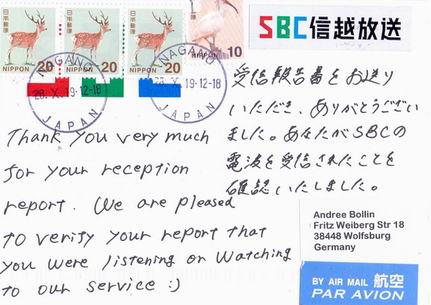 日本郵便 日本郵便 日本郵便
20 20 20 10
NIPPON NIPPON NIPPON NIPPON
NAGANO NAGANO
28.X.19.12-18 28.X.19.12-18
JAPAN JAPAN
SBC信越放送
受信報告書をお送り
いただき、ありがとうござい
ました。あなたがSBCの
電波を受信されたことを
確認いたしました。
Thank you very much
for your reception
report. We are pleased
to verify your report that
you were listening or watching
to our service :)
Andree Bollin
Fritz Weiberg Str 18
38448 Wolfsburg
Germany
BY AIR MAIL 航空
PAR AVION